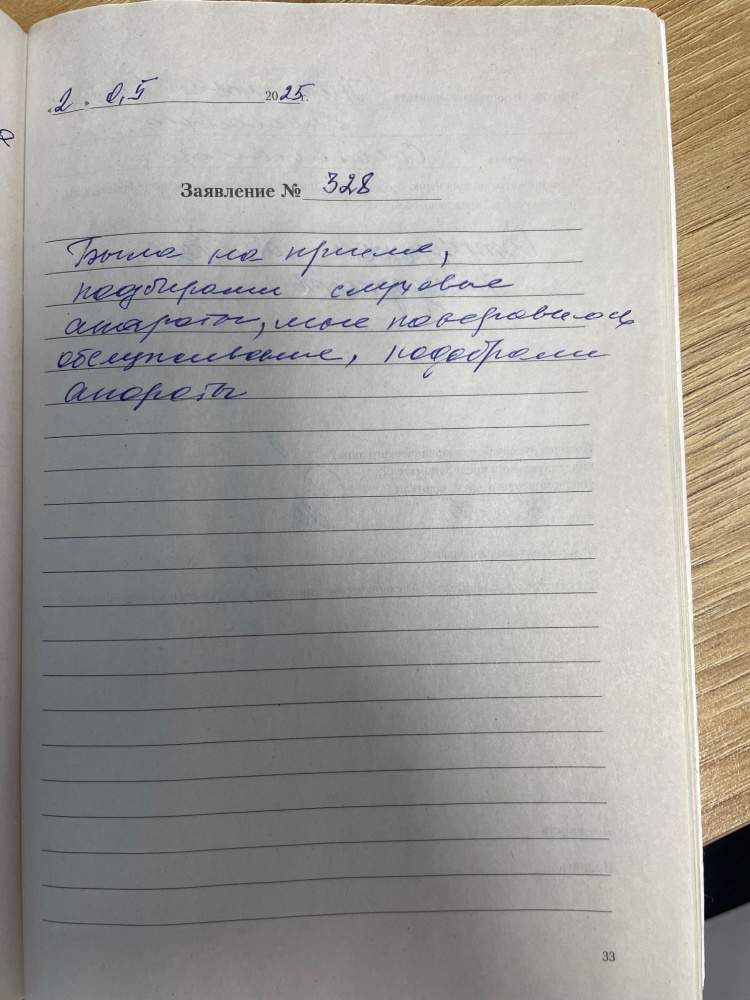 2. 0,5 2025г.
Заявление № 328
Была на приеме,
подбирали слуховые
апараты, мне понравилось
обслуживание, подобрали
апораты
33